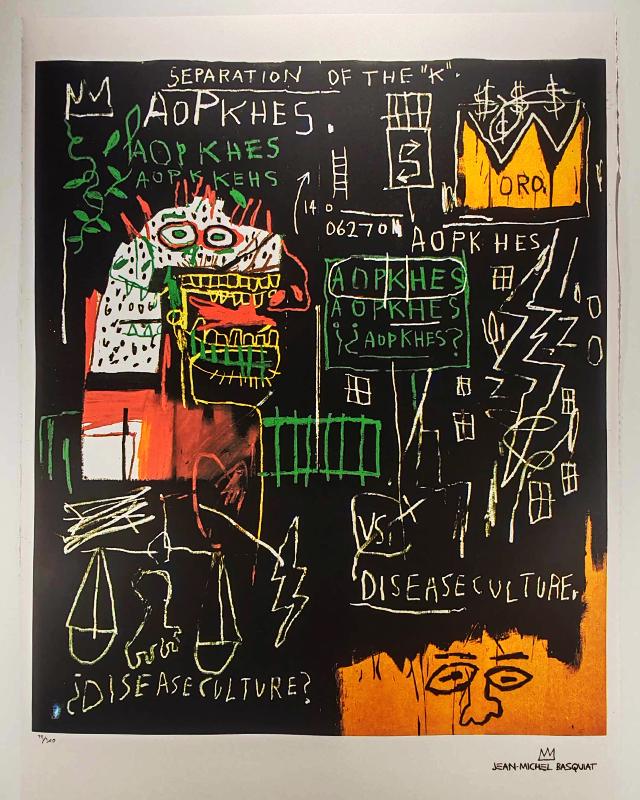 SEPARATION OF THE "K".
AOPKHES.
AOPKHES
AOPKKEHS
$ $ $
S
ORO.
14
06270
AOPKHES
AOPKHES
AOPKHES
¡¿AOPKHES?
VS.
DISEASE CULTURE.
¿DISEASE CULTURE?
JEAN-MICHEL BASQUIAT